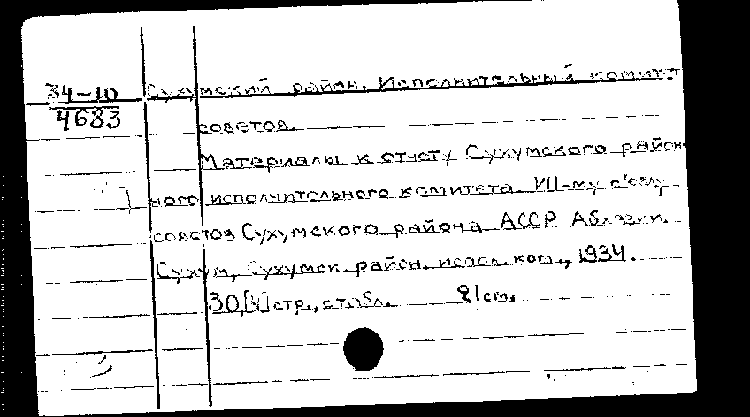 34-10 Сухумский район. Исполнительный комитет
4683
советов.
Материалы к отчету Сухумского район-
ного исполнительного комитета VII-му с'езду
советов Сухумского района АССР Абхазии.
Сухум, Сухумск. район. испол. ком., 1934.
30,[3] стр., с табл. 21 см.